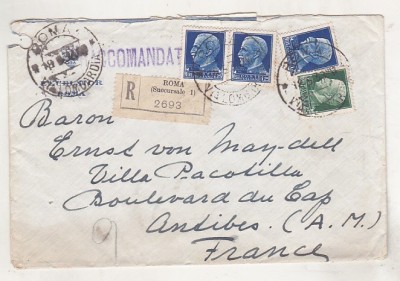 ROMA
RACCOMANDATA
R
ROMA
(Succursale 1)
2693
Baron
Ernst von May-dell
Villa Pacotilla
Boulevard du Cap
Antibes. (A.M.)
France